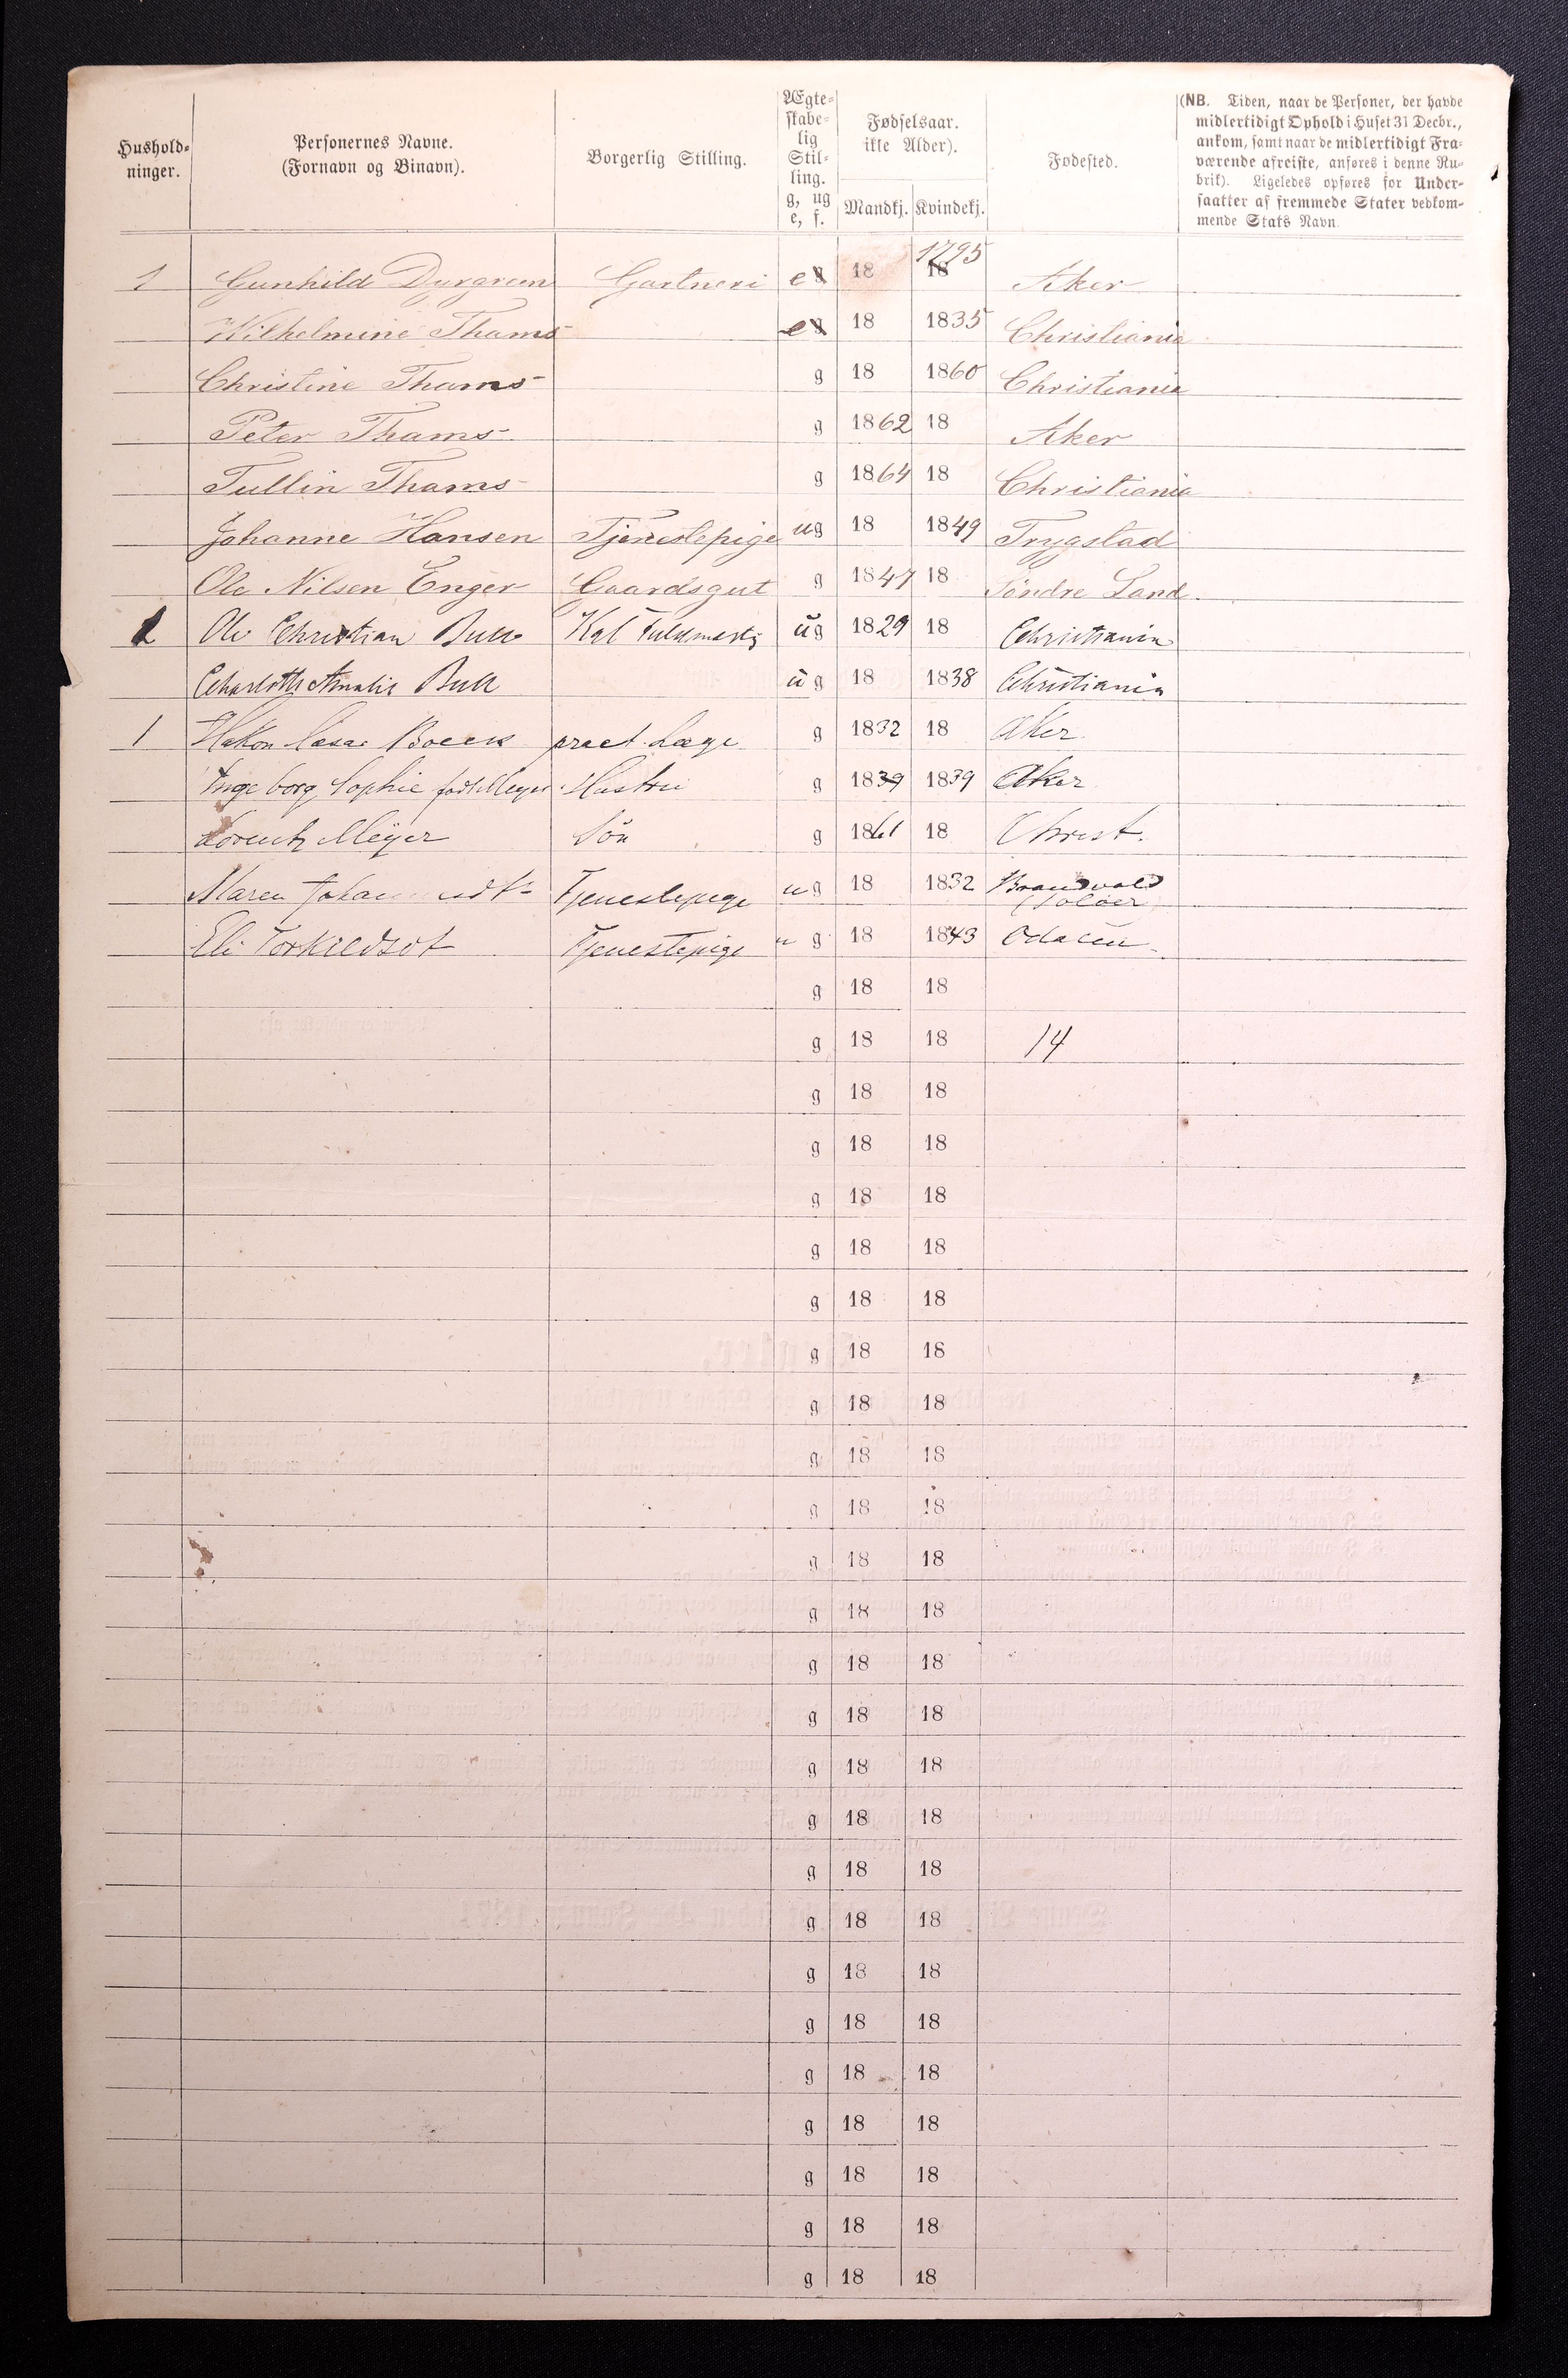 Hushold-
ninger.
Personernes Navne.
(Fornavn og Binavn).
Borgerlig Stilling.
Ægte-
skabe-
lig
Stil-
ling.
g, ug
e, f.
Fødselsaar.
ikke Alder).
Mandkj. Kvindekj.
Fødested.
(NB. Tiden, naar de Personer, der havde
midlertidigt Ophold i Huset 31 Decbr.,
ankom, samt naar de midlertidigt Fra-
værende afreiste, anføres i denne Ru-
brik). Ligeledes opføres for Under-
saatter af fremmede Stater vedkom-
mende Stats Navn.
1 Gunhild Dyrgreen Gartneri e g 18 1795 18 Aker
Wilhelmine Thams e g 18 1835 Christiania
Christine Thams g 18 1860 Christiania
Peter Thams g 1862 18 Aker
Tullin Thams g 1864 18 Christiania
Johanne Hansen Tjenestepige ug 18 1849 Trygstad
Ole Nilsen Enger Gaardsgut g 1847 18 Söndre Land
1 Ole Christian Bull Kgl Fuldmægt ug 1829 18 Christiania
Charlotte Amalie Bull ug 18 1838 Christiania
1 Hakon Boeck pract. Læge g 1832 18 Aker
Ingeborg Sophie født Meyer Hustru g 1839 1839 Aker
Lorentz Meÿer Sön g 1861 18 Christ.
Maren Tjenestepige ug 18 1832 Brandvold
Soløer
Eli Torkildsdt Tjenestepige u g 18 1843 Odalen
g 18 18
g 18 18 14
g 18 18
g 18 18
g 18 18
g 18 18
g 18 18
g 18 18
g 18 18
g 18 18
g 18 18
g 18 18
g 18 18
g 18 18
g 18 18
g 18 18
g 18 18
g 18 18
g 18 18
g 18 18
g 18 18
g 18 18
g 18 18
g 18 18
g 18 18
g 18 18